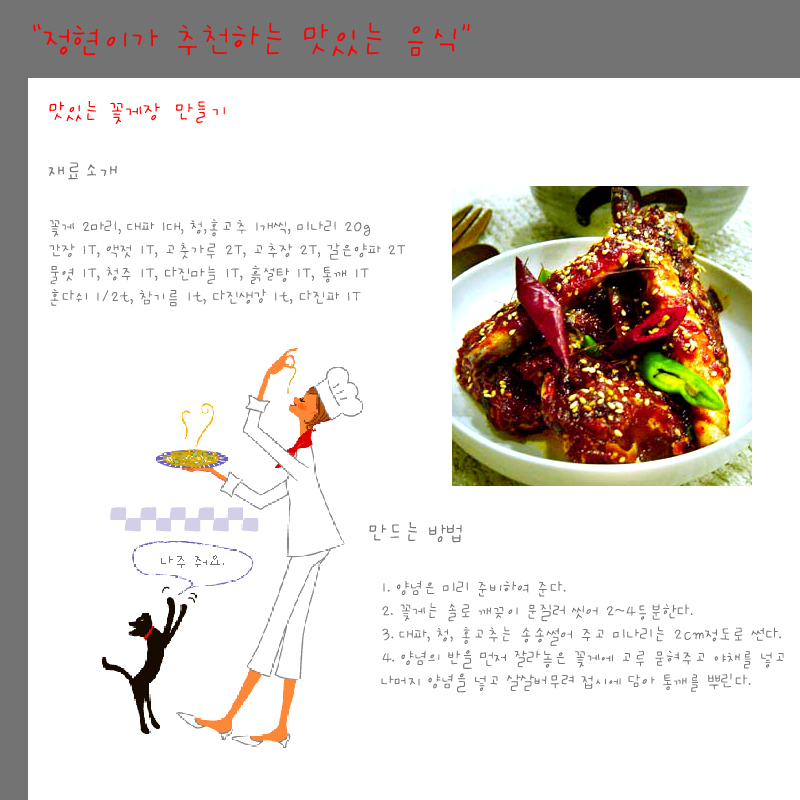 "정현이가 추천하는 맛있는 음식"
맛있는 꽃게장 만들기
재료소개
꽃게 2마리, 대파 1대, 청,홍고추 1개씩, 미나리 20g
간장 1T, 액젓 1T, 고춧가루 2T, 고추장 2T, 갈은양파 2T
물엿 1T, 청주 1T, 다진마늘 1T, 흙설탕 1T, 통깨 1T
혼다쉬 1/2t, 참기름 1t, 다진생강 1t, 다진파 1T
나주 줘요.
만드는 방법
1. 양념은 미리 준비하여 준다.
2. 꽃게는 솔로 깨끗이 문질러 씻어 2~4등분한다.
3. 대파, 청, 홍고추는 송송썰어 주고 미나리는 2cm정도로 썬다.
4. 양념의 반을 먼저 잘라놓은 꽃게에 고루 묻혀주고 야채를 넣고
나머지 양념을 넣고 살살버무려 접시에 담아 통깨를 뿌린다.